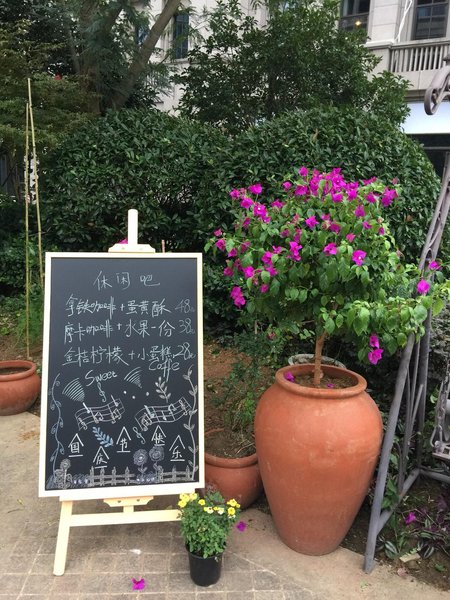 休闲吧
拿铁咖啡+蛋黄酥 48元
摩卡咖啡+水果一份 38元
金桔柠檬+小蛋糕 28元
Sweet Cafe
国庆节快乐